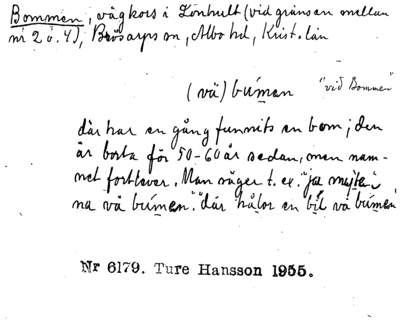 Bommen, vägkors i Lönhult (vid gränsen mellan
nr 2 o. 4), Brösarps sn, Albo hd, Krist. län
(vä) búmen "vid Bommen"
där har en gång funnits en bom; den
är borta för 50-60 år sedan, men nam-
net fortlever. Man säger t. ex. "ja
na vä búmen." "där hålor en bil vä búmen
Nr 6179. Ture Hansson 1955.